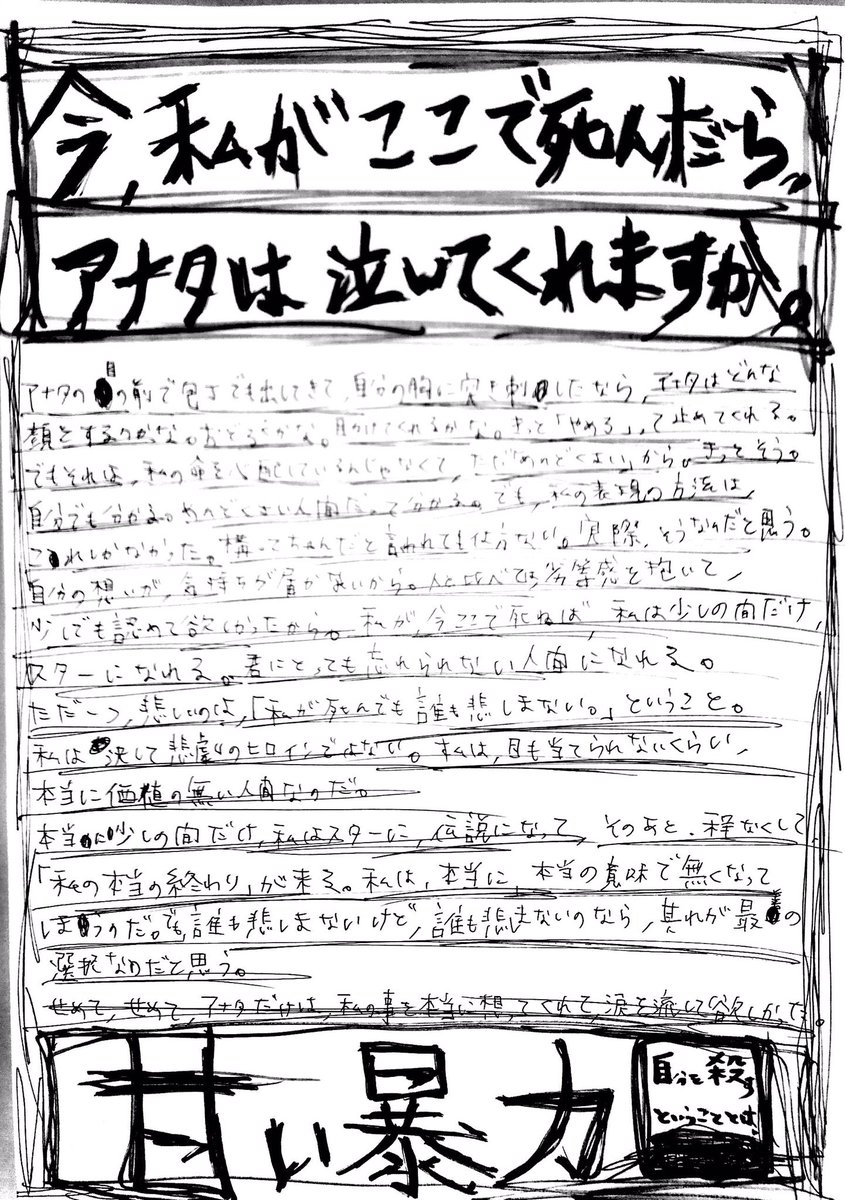 今、私がここで死んだら、
アナタは泣いてくれますか。
アナタの目の前で包丁でも出してきて、自分の胸に突き刺したなら、アナタはどんな
顔をするのかな。おどろくかな。助けてくれるかな。きっと「やめろ」って止めてくれる。
でもそれは、私の命を心配しているんじゃなくて、ただ「めんどくさい」から。きっとそう。
自分でも分かる。めんどくさい人間だって分かる。でも、私の表現の方法は、
これしかなかった。構ってちゃんだと言われても仕方ない。実際、そうなんだと思う。
自分の想いが、気持ちが届かないから。人と比べてら劣等感を抱いて、
少しでも認めて欲しかったから。私が、今ここで死ねば、私は少しの間だけ、
スターになれる。君にとっても忘れられない人間になれる。
ただ一つ、悲しいのは、「私が死んでも誰も悲しまない。」ということ。
私は決して悲劇のヒロインではない。私は、目も当てられないくらい、
本当に価値の無い人間なのだ。
本当に少しの間だけ、私はスターに、伝説になって、そのあと、程なくして
「私の本当の終わり」が来る。私は、本当に、本当の意味で無くなって
しまうのだ。でも誰も悲しまないけど、誰も悲しまないのなら、其れが最善の
選択なのだと思う。
せめて、せめて、アナタだけは、私の事を本当に想ってくれて、涙を流して欲しかった。
甘い暴力
自分を殺す
ということとは